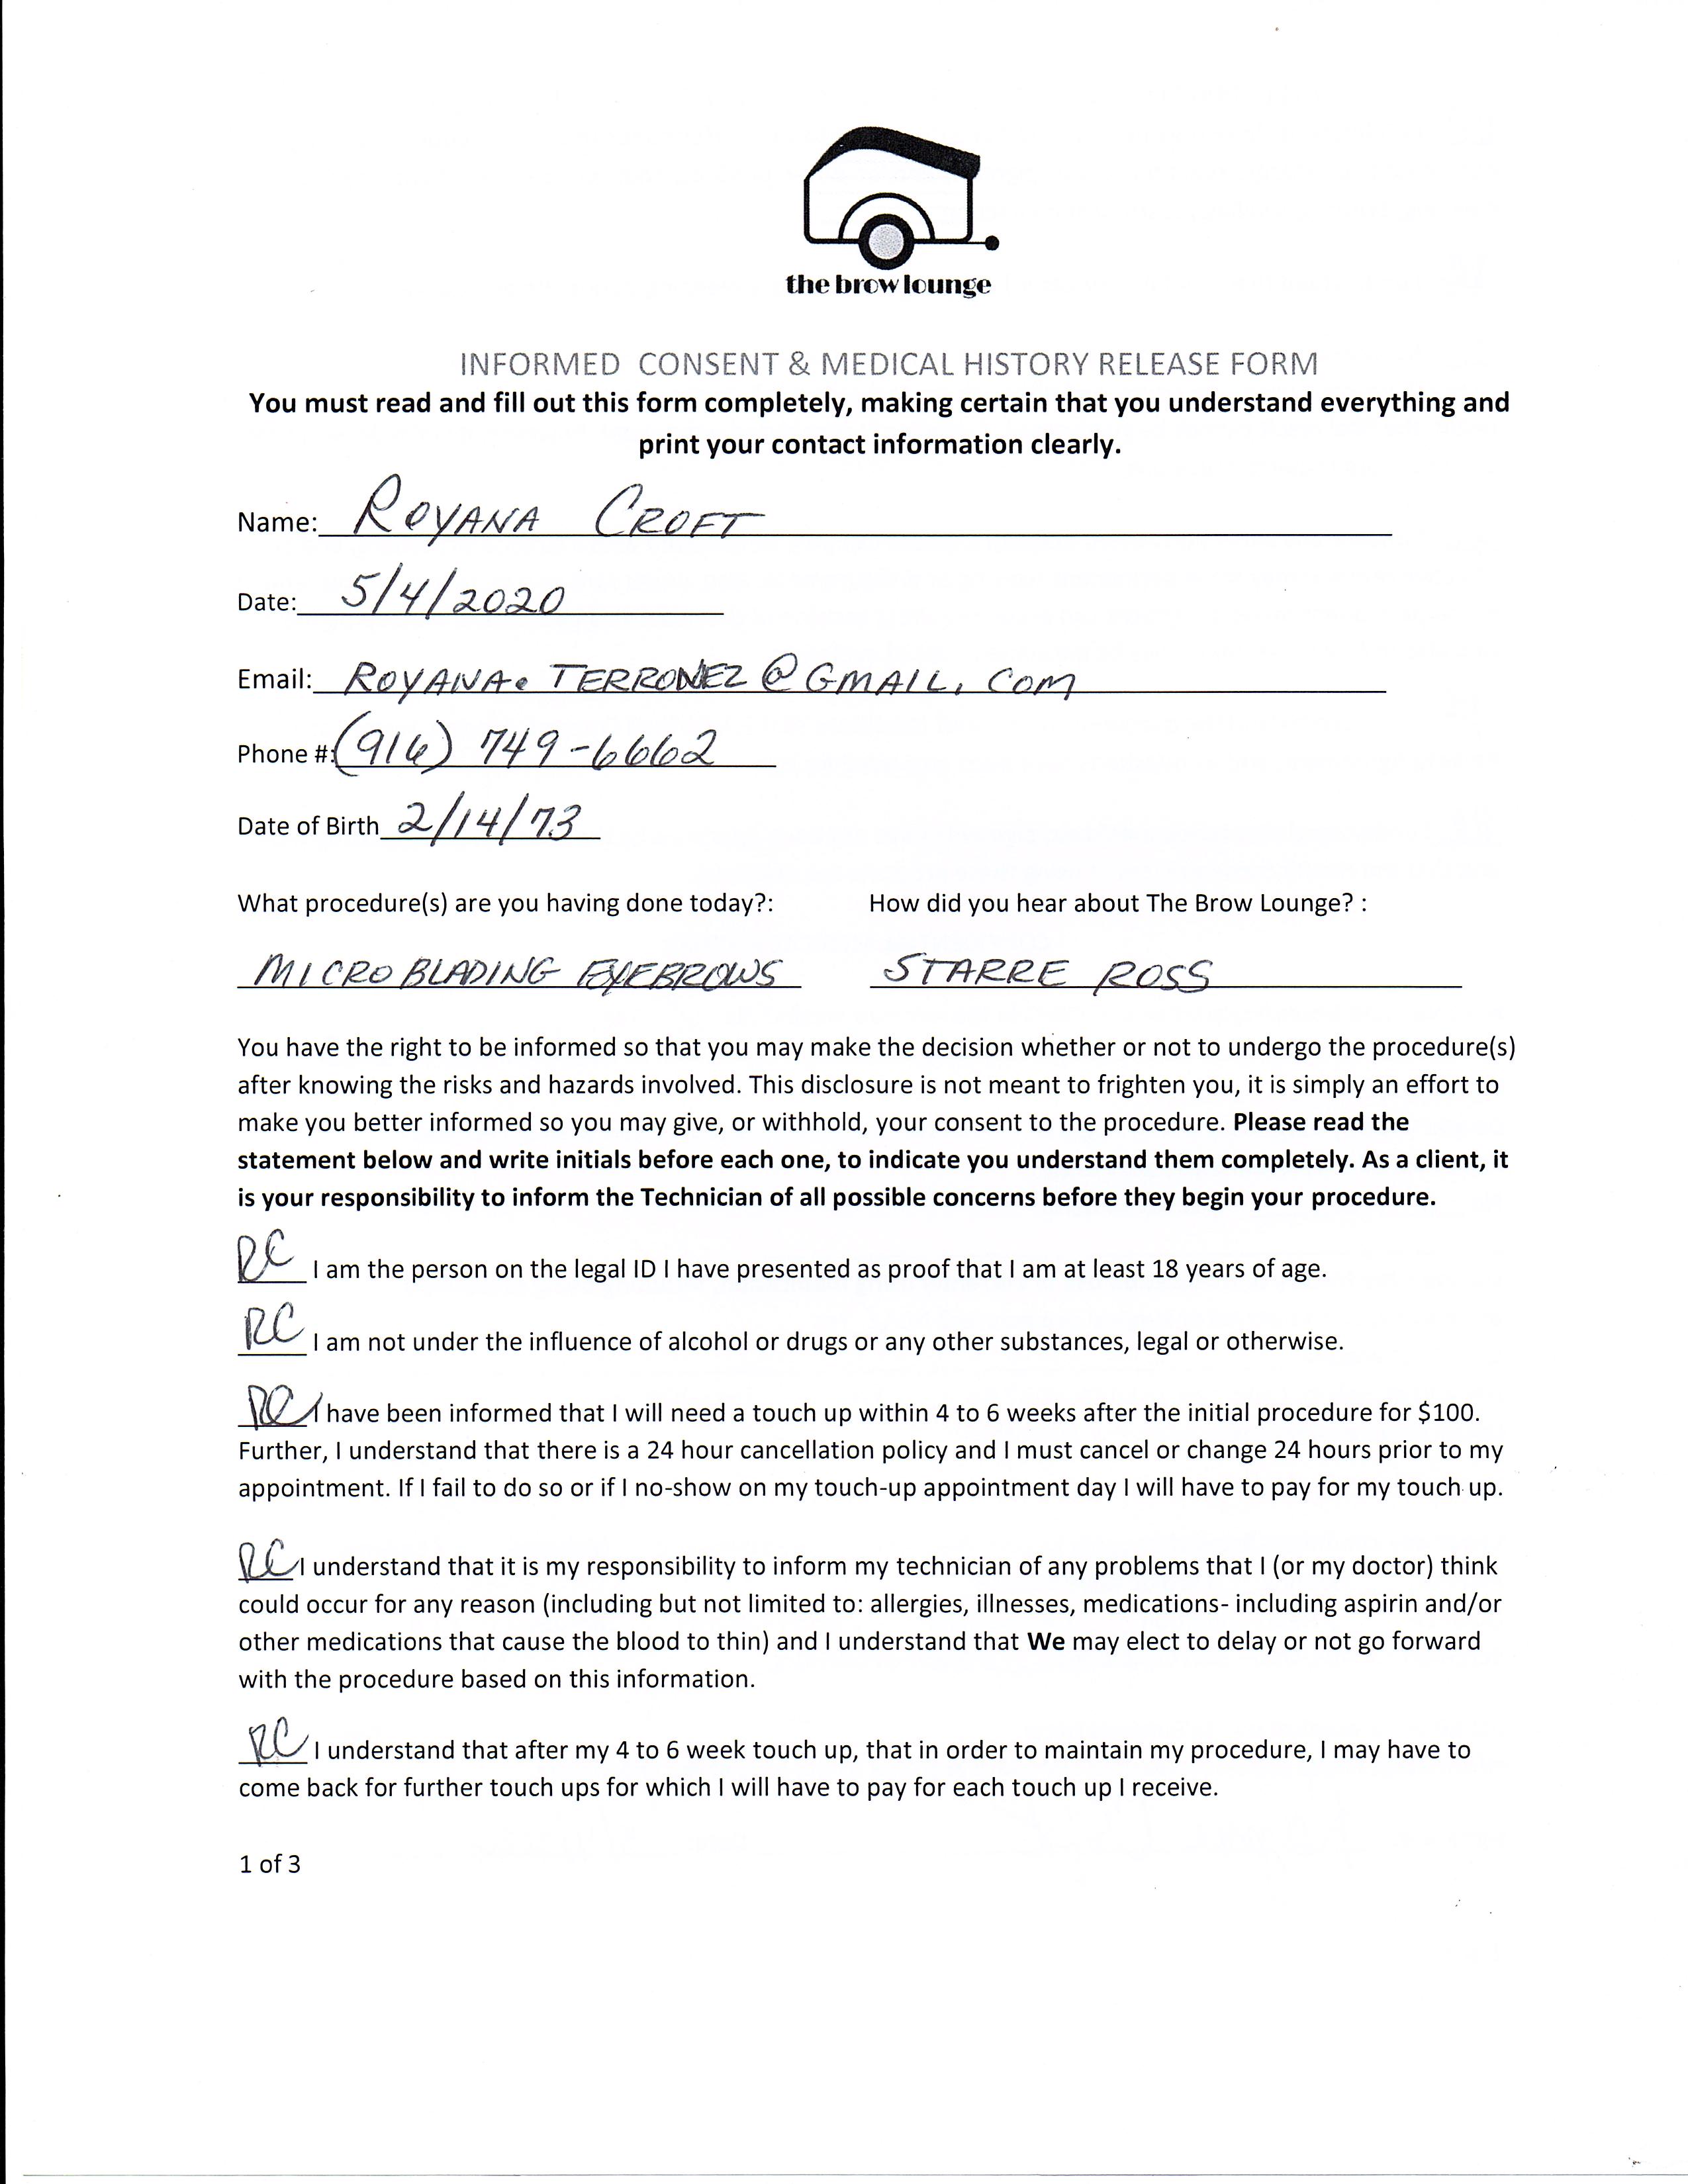 the brow lounge
INFORMED CONSENT & MEDICAL HISTORY RELEASE FORM
You must read and fill out this form completely, making certain that you understand everything and
print your contact information clearly.
Name: ROYANA CROFT
Date: 5/4/2020
Email: ROYANA.TERRONEZ@GMAIL.COM
Phone #: (916) 749-6662
Date of Birth 2/14/73
What procedure(s) are you having done today?: How did you hear about The Brow Lounge? :
MICRO BLADING EYEBROWS STARRE ROSS
You have the right to be informed so that you may make the decision whether or not to undergo the procedure(s)
after knowing the risks and hazards involved. This disclosure is not meant to frighten you, it is simply an effort to
make you better informed so you may give, or withhold, your consent to the procedure. Please read the
statement below and write initials before each one, to indicate you understand them completely. As a client, it
is your responsibility to inform the Technician of all possible concerns before they begin your procedure.
RC I am the person on the legal ID I have presented as proof that I am at least 18 years of age.
RC I am not under the influence of alcohol or drugs or any other substances, legal or otherwise.
RC I have been informed that I will need a touch up within 4 to 6 weeks after the initial procedure for $100.
Further, I understand that there is a 24 hour cancellation policy and I must cancel or change 24 hours prior to my
appointment. If I fail to do so or if I no-show on my touch-up appointment day I will have to pay for my touch up.
RC I understand that it is my responsibility to inform my technician of any problems that I (or my doctor) think
could occur for any reason (including but not limited to: allergies, illnesses, medications- including aspirin and/or
other medications that cause the blood to thin) and I understand that We may elect to delay or not go forward
with the procedure based on this information.
RC I understand that after my 4 to 6 week touch up, that in order to maintain my procedure, I may have to
come back for further touch ups for which I will have to pay for each touch up I receive.
1 of 3